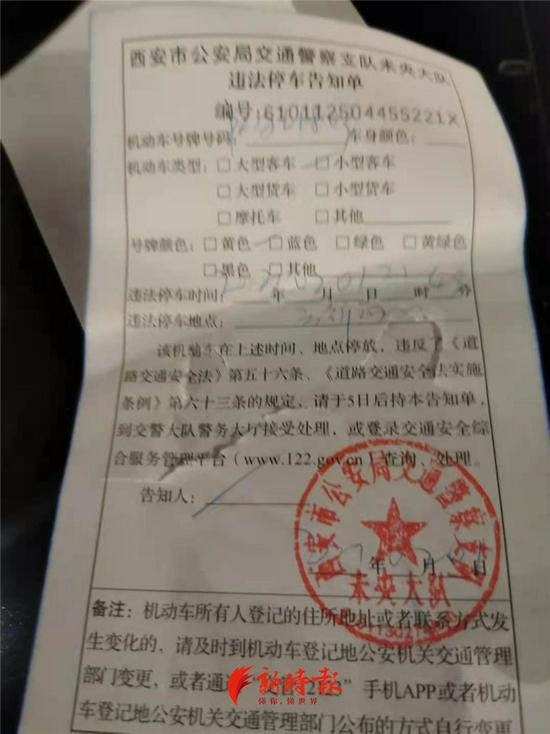 西安市公安局交通警察支队未央大队
违法停车告知单
编号:610112504455221X
机动车号牌号码: 车身颜色:
机动车类型: □大型客车 □小型客车
□大型货车 □小型货车
□摩托车 □其他
号牌颜色: □黄色 □蓝色 □绿色 □黄绿色
□黑色 □其他
违法停车时间: 年 月 日 时 分
违法停车地点:
该机动车在上述时间、地点停放,违反了《道
路交通安全法》第五十六条、《道路交通安全法实施
条例》第六十三条的规定,请于5日后持本告知单,
到交警大队警务大厅接受处理,或登录交通安全综
合服务管理平台(www.122.gov.cn)查询、处理。
告知人:
西安市公安局交通警察支队
未央大队
年 月 日
备注:机动车所有人登记的住所地址或者联系方式发
生变化的,请及时到机动车登记地公安机关交通管理
部门变更,或者通过 12123”手机APP或者机动
车登记地公安机关交通管理部门公布的方式自行变更
新时报
懂你,懂世界